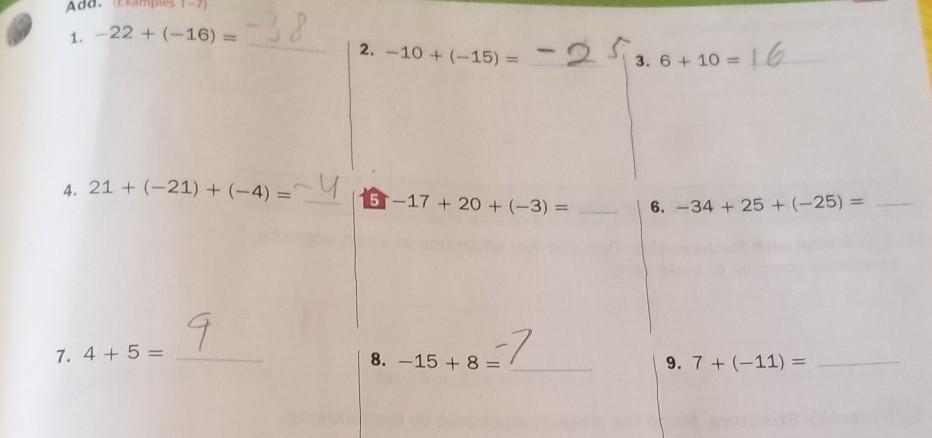 Add. (Examples 1–7)
1. −22 + (−16) = -38
2. −10 + (−15) = -25
3. 6 + 10 = 16
4. 21 + (−21) + (−4) = -4
5 −17 + 20 + (−3) = ___
6. −34 + 25 + (−25) = ___
7. 4 + 5 = 9
8. −15 + 8 = -7
9. 7 + (−11) = ___